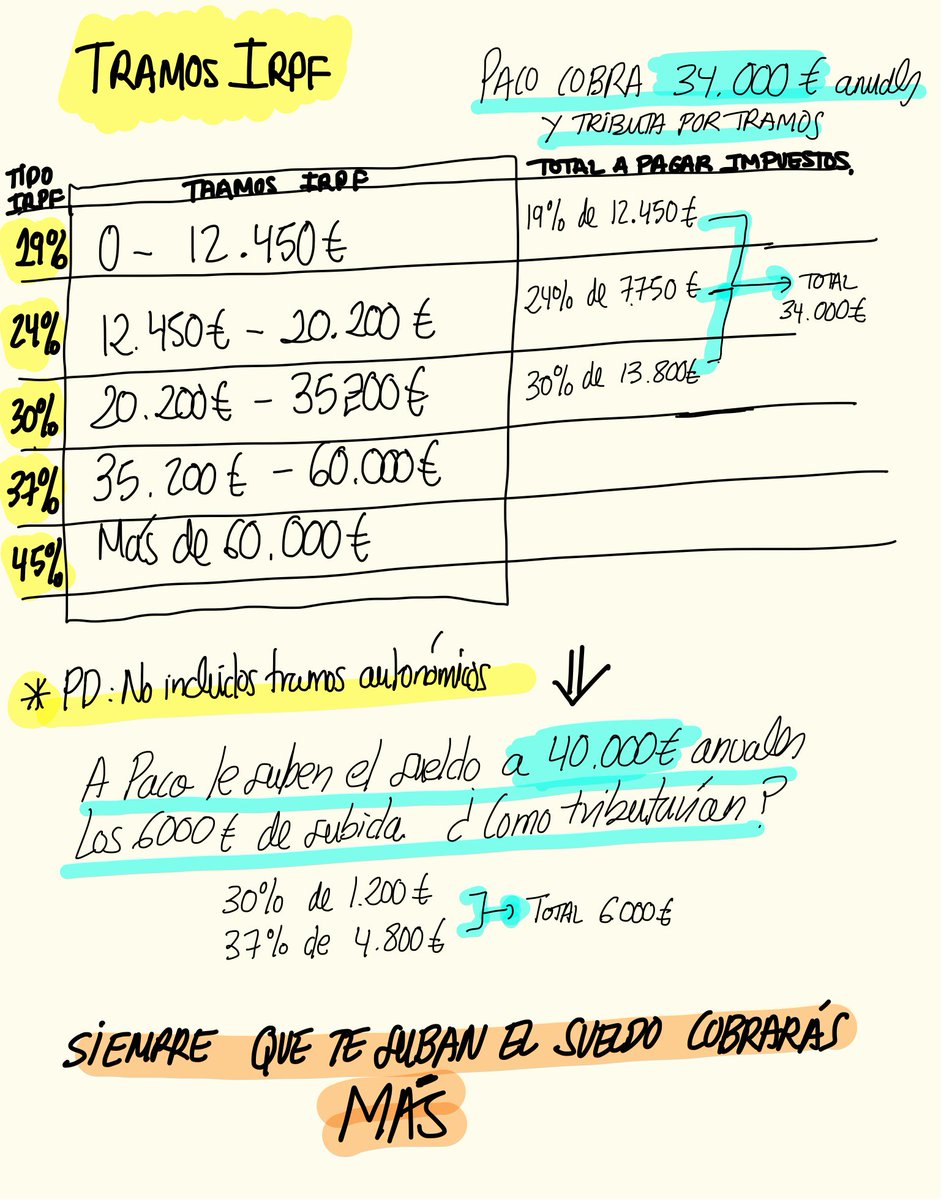 TRAMOS IRPF
PACO COBRA 34.000 € anuales
Y TRIBUTA POR TRAMOS
TIPO
IRPF
TRAMOS IRPF
TOTAL A PAGAR IMPUESTOS.
19%
0 - 12.450€
19% de 12.450€
24%
12.450€ - 20.200 €
24% de 7.750 €
TOTAL
34.000€
30%
20.200€ - 35200€
30% de 13.800€
37%
35.200€ - 60.000€
45%
Más de 60.000€
* PD: No incluidos tramos autonómicos
⇓
A Paco le suben el sueldo a 40.000€ anuales
Los 6000€ de subida. ¿Como tributarían?
30% de 1.200€
37% de 4.800€
TOTAL 6000€
SIEMPRE QUE TE SUBAN EL SUELDO COBRARÁS
MÁS